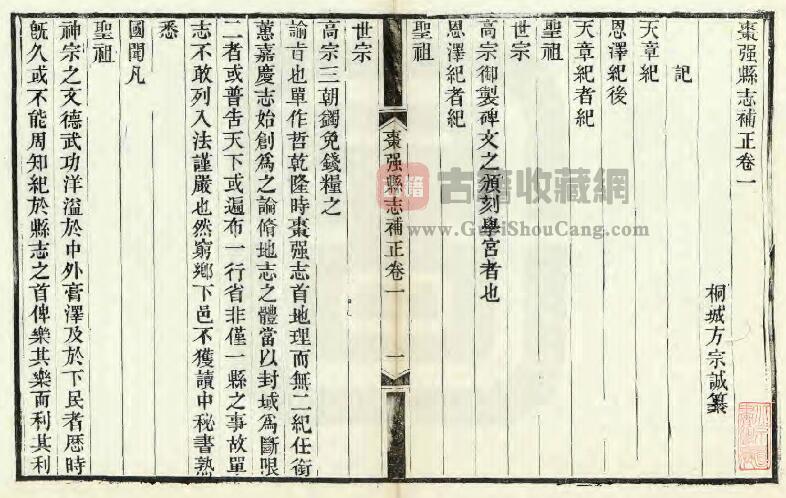 棗强縣志補正卷一
桐城方宗誠纂
記
天章紀
恩澤紀後
天章紀者紀
聖祖
世宗
高宗御製碑文之頒刻學宮者也
恩澤紀者紀
聖祖
棗强縣志補正卷一
一
世宗
高宗三朝蠲免錢糧之
諭旨也單作哲乾隆時棗强志首地理而無二紀任銜
蕙嘉慶志始創爲之論脩地志之體當以封域爲斷限
二者或普告天下或遍布一行省非僅一縣之事故單
志不敢列入法謹嚴也然窮鄉下邑不獲讀中秘書熟
悉
國聞凡
聖祖
神宗之文德武功洋溢於中外膏澤及於下民者歷時
旣久或不能周知紀於縣志之首俾樂其樂而利其利
古籍收藏網
www.GujiShouCang.com